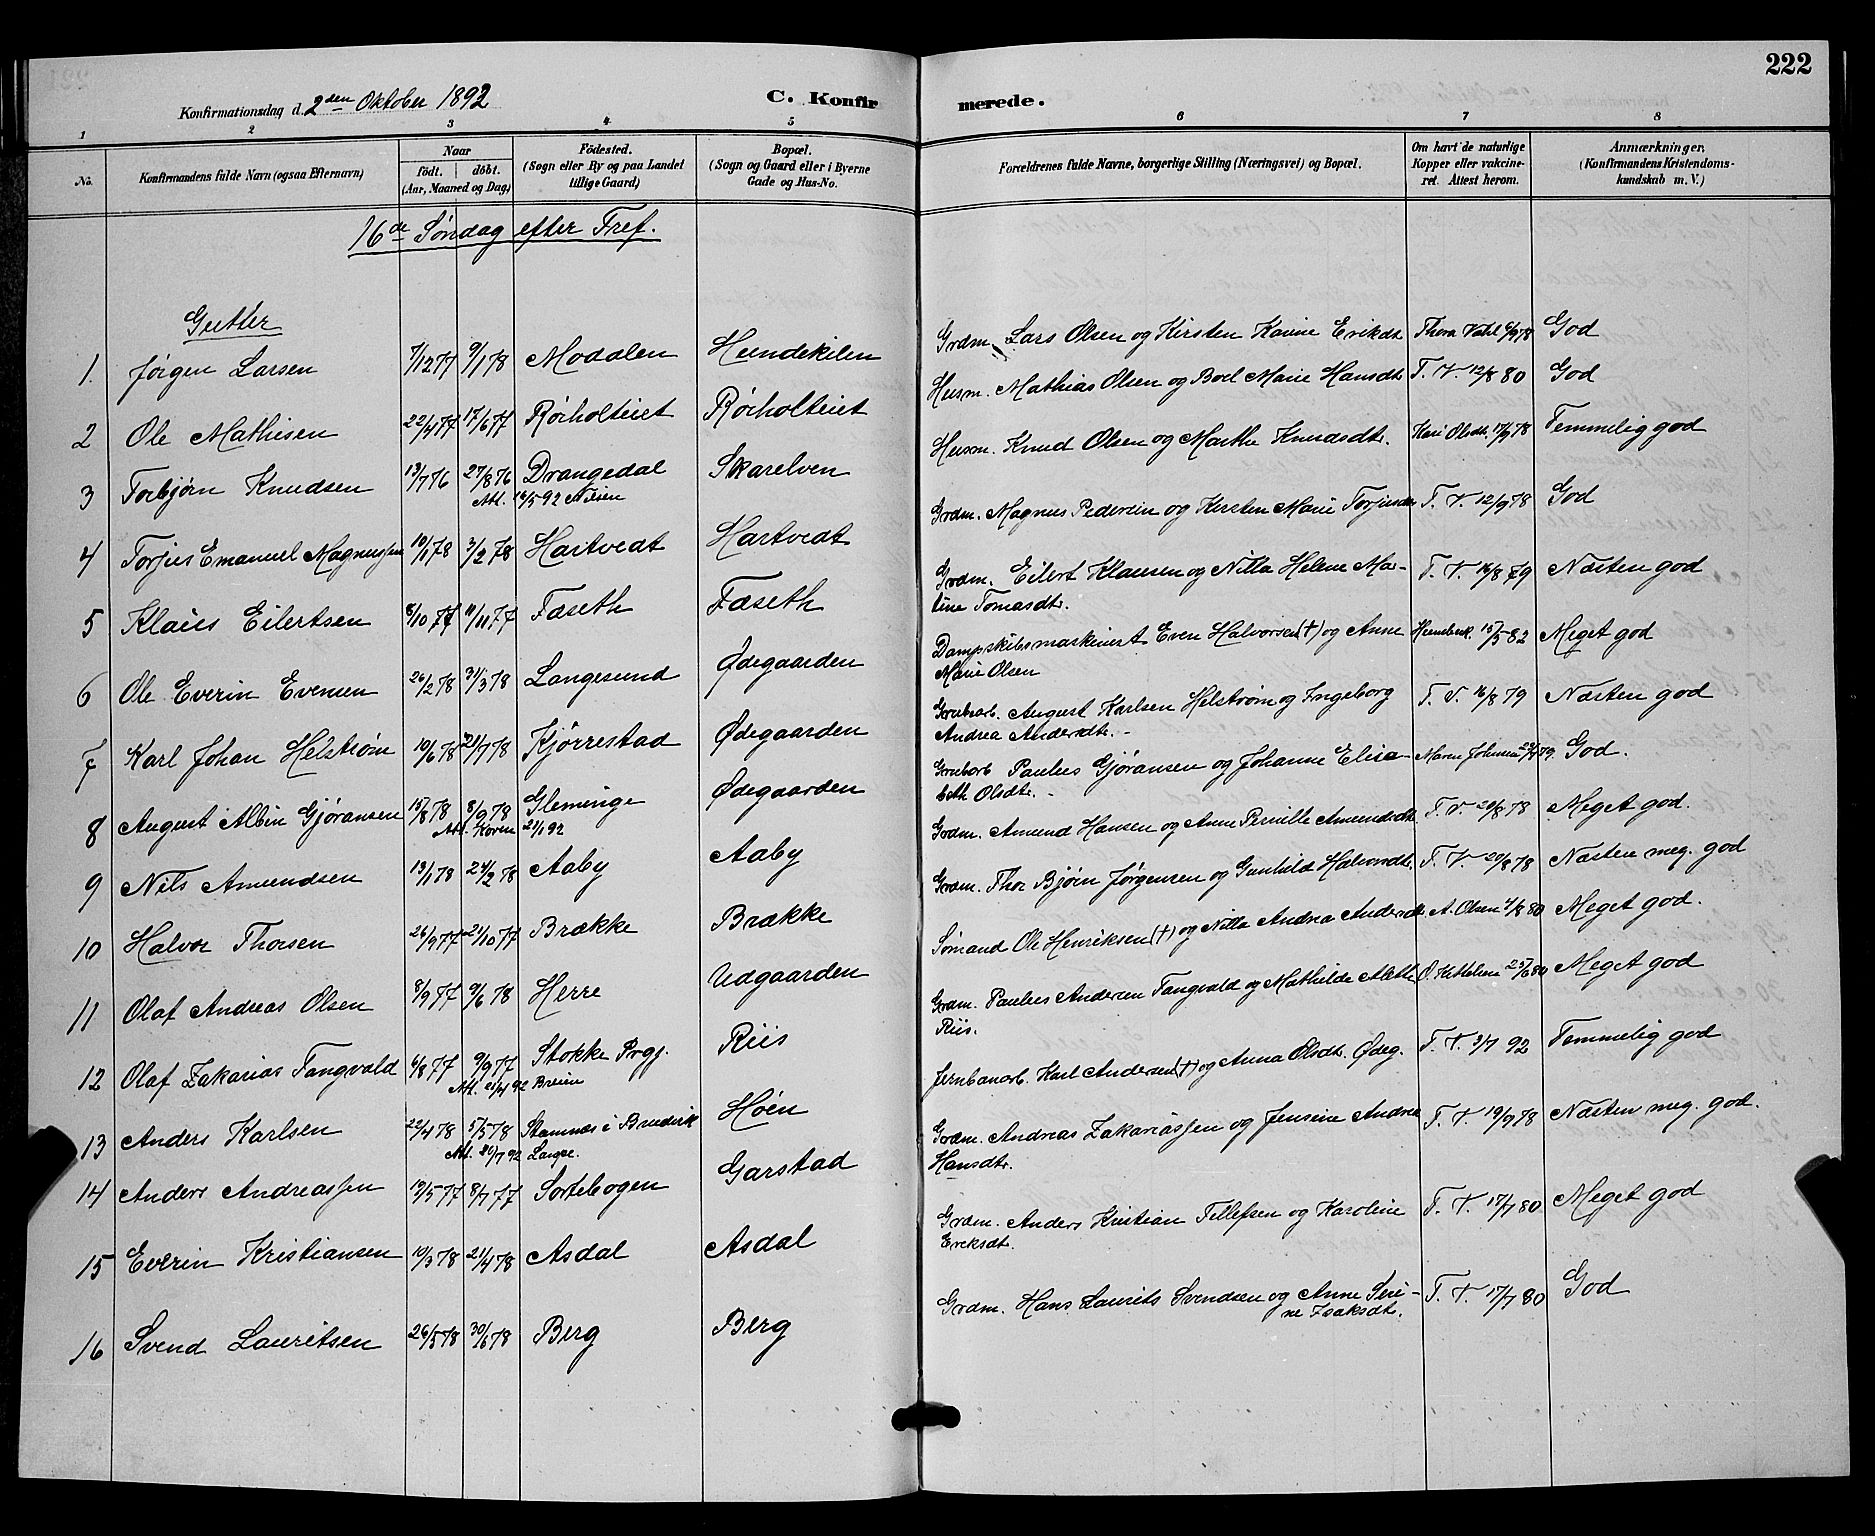 222
Konfirmationsdag d. 2den Oktober 1892
C. Konfirmerede.
1 2 3 4 5 6 7 8
No.
Konfirmandens fulde Navn (ogsaa Efternavn)
Naar
födt. döbt.
(Aar, Maaned og Dag)
Födested.
(Sogn eller By og paa Landet
tillige Gaard)
Bopæl.
(Sogn og Gaard eller i Byerne
Gade og Hus-No.
Forældrenes fulde Navne, borgerlige Stilling (Næringsvei) og Bopæl.
Om havt de naturlige
Kopper eller vakcine-
ret. Attest herom.
Anmærkninger.
(Konfirmandens Kristendoms-
kundskab m. V.)
16de Søndag efter Tref.
Gutter
1. Jørgen Larsen 7/12 77 9/1 78 Modalen Hundekilen Grdm. Lars Olsen og Kirsten Karine Eriksdt. Thom. Vahl 6/9 78 God
2 Ole Mathisen 22/4 77 17/6 77 Rørholteiet Rørholteiet Husm. Mathias Olsen og Boel Marie Hansdt. T. V. 12/8 80 God
3 Torbjørn Knudsen 13/7 76 27/8 76 Drangedal Skarelven Husm. Knud Olsen og Marthe Knudsdt. Kari Olsdt. 17/9 78 Temmelig god
Att. 14/5 92 Nilsen
4 Torjus Emanuel Magnussen 10/1 78 3/2 78 Hartvedt Hartvedt Grdm. Magnus Pedersen og Kirsten Marie Torjusdt. T. V. 12/9 78 God
5 Klaus Eilertsen 8/10 77 11/11 77 Faseth Faseth Grdm. Eilert Klausen og Nilla Helene Ma- T. V. 16/8 79 Næsten god
tine Tomasdt.
6 Ole Everin Evensen 26/2 78 31/3 78 Langesund Ødegaarden Dampskibsmaskinist Even Halvorsen (+) og Anne 15/5 82 Meget god
Marie Olsen
7 Karl Johan Helstrøm 10/6 78 21/7 78 Kjørrestad Ødegaarden Grubearb. August Karlsen Helstrøm og Ingeborg T. V. 16/8 79 Næsten god
Andrea Andersdt.
8 August Albin Gjøransen 15/8 78 8/9 78 Gleminge Ødegaarden Grubarb Paulus Gjøransen og Johanne Elisa- Maren Johnsen God.
Att. Koren 21/1 92
beth Olsdt.
9 Nils Amundsen 13/1 78 24/2 78 Aaby Aaby Grdm. Amund Hansen og Anne Pernille Amundsdt. T. V. 20/8 78 Meget god.
10 Halvor Thorsen 26/9 77 21/10 77 Brække Brække Grdm. Thor Bjørn Jørgensen og Gunhild Halvorsdt. T. V. 20/8 78 Næsten meg. god
11 Olaf Andreas Olsen 8/9 77 9/6 78 Herre Udgaarden Sømand Ole Henriksen (+) og Nilla Andrea Andersdt. A. Olsen 4/8 80 Meget god.
12 Olaf Zakarias Tangvald 6/8 77 9/9 77 Stokke Prgj. Riis Grdm. Paulus Andersen Tangvald og Mathilde Aleth. O. Kittelsen 25/6 80 Meget god
Att. 21/4 92 Breien
Riis.
13 Anders Karlsen 22/4 78 5/5 78 Stamnæs i Høen Jernbanarb. Karl Andersen (+) og Anna Olsdt. Ødeg. T. V. 3/7 92 Temmelig god
Att. 20/7 92 Lange.
14 Anders Andreassen 19/5 77 8/7 77 Sortebogen Garstad Grdm. Andreas Zakariassen og Jensine Andrea T. V. 19/9 78 Næsten meg. god.
Hansdt.
15 Everin Kristiansen 10/3 78 21/4 78 Asdal Asdal Grdm. Anders Kristian Tellefsen og Karoline T. V. 17/7 80 Meget god
Ereksdt.
16 Svend Lauritsen 26/5 78 30/6 78 Berg Berg Grdm. Hans Laurits Svendsen og Anne Seri- T. V. 17/7 80 God
ne Isaksdt.